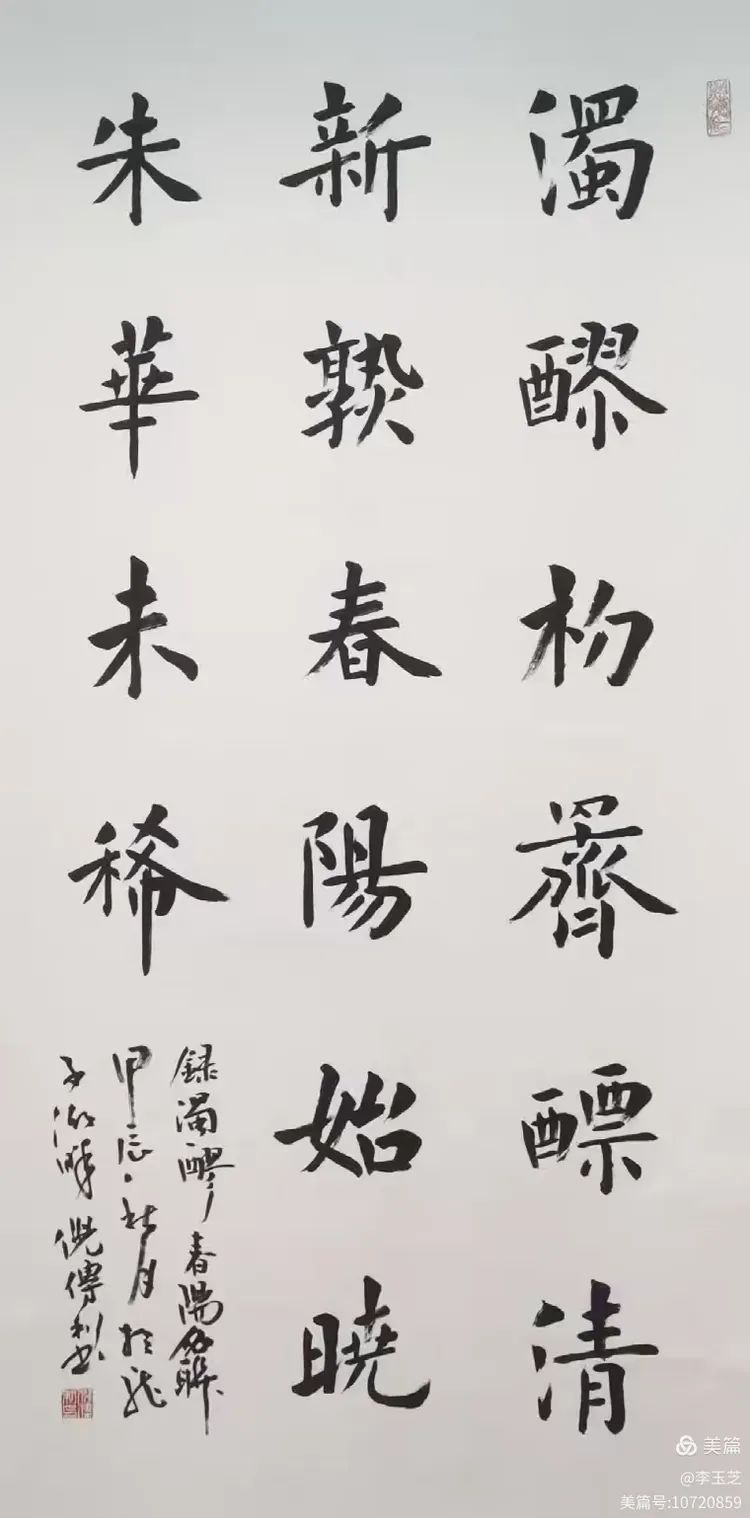 濁醪初醥清
新熟春陽始曉
朱華未稀
録濁醪春陽聯
甲辰秋月於龍
子湖畔倪傳
美篇
@李玉芝
美篇号:10720859